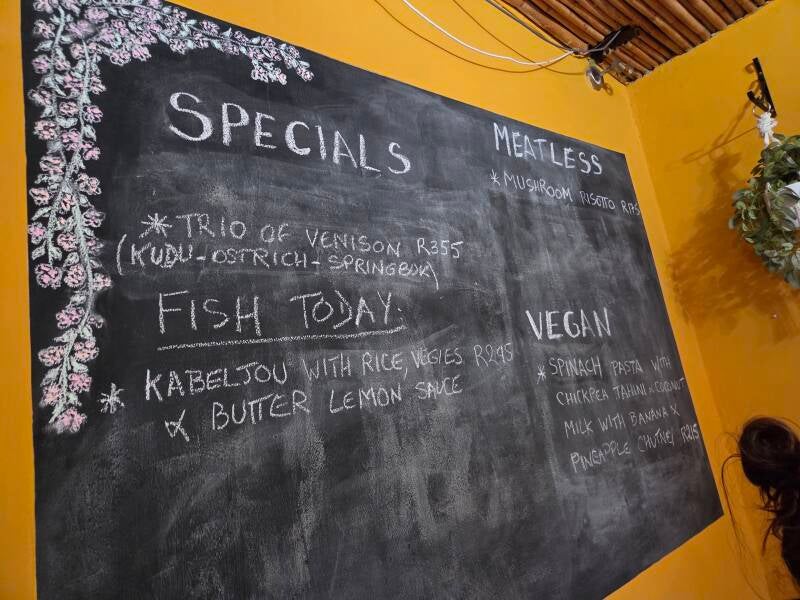 SPECIALS
* TRIO OF VENISON R355
(KUDU-OSTRICH-SPRINGBOK)
FISH TODAY.
* KABELJOU WITH RICE, VEGIES
& BUTTER LEMON SAUCE
MEATLESS
* MUSHROOM RISOTTO R175
VEGAN
* SPINACH PASTA WITH
CHICKPEA TAHINI & COCONUT
MILK WITH BANANA &
PINEAPPLE CHUTNEY